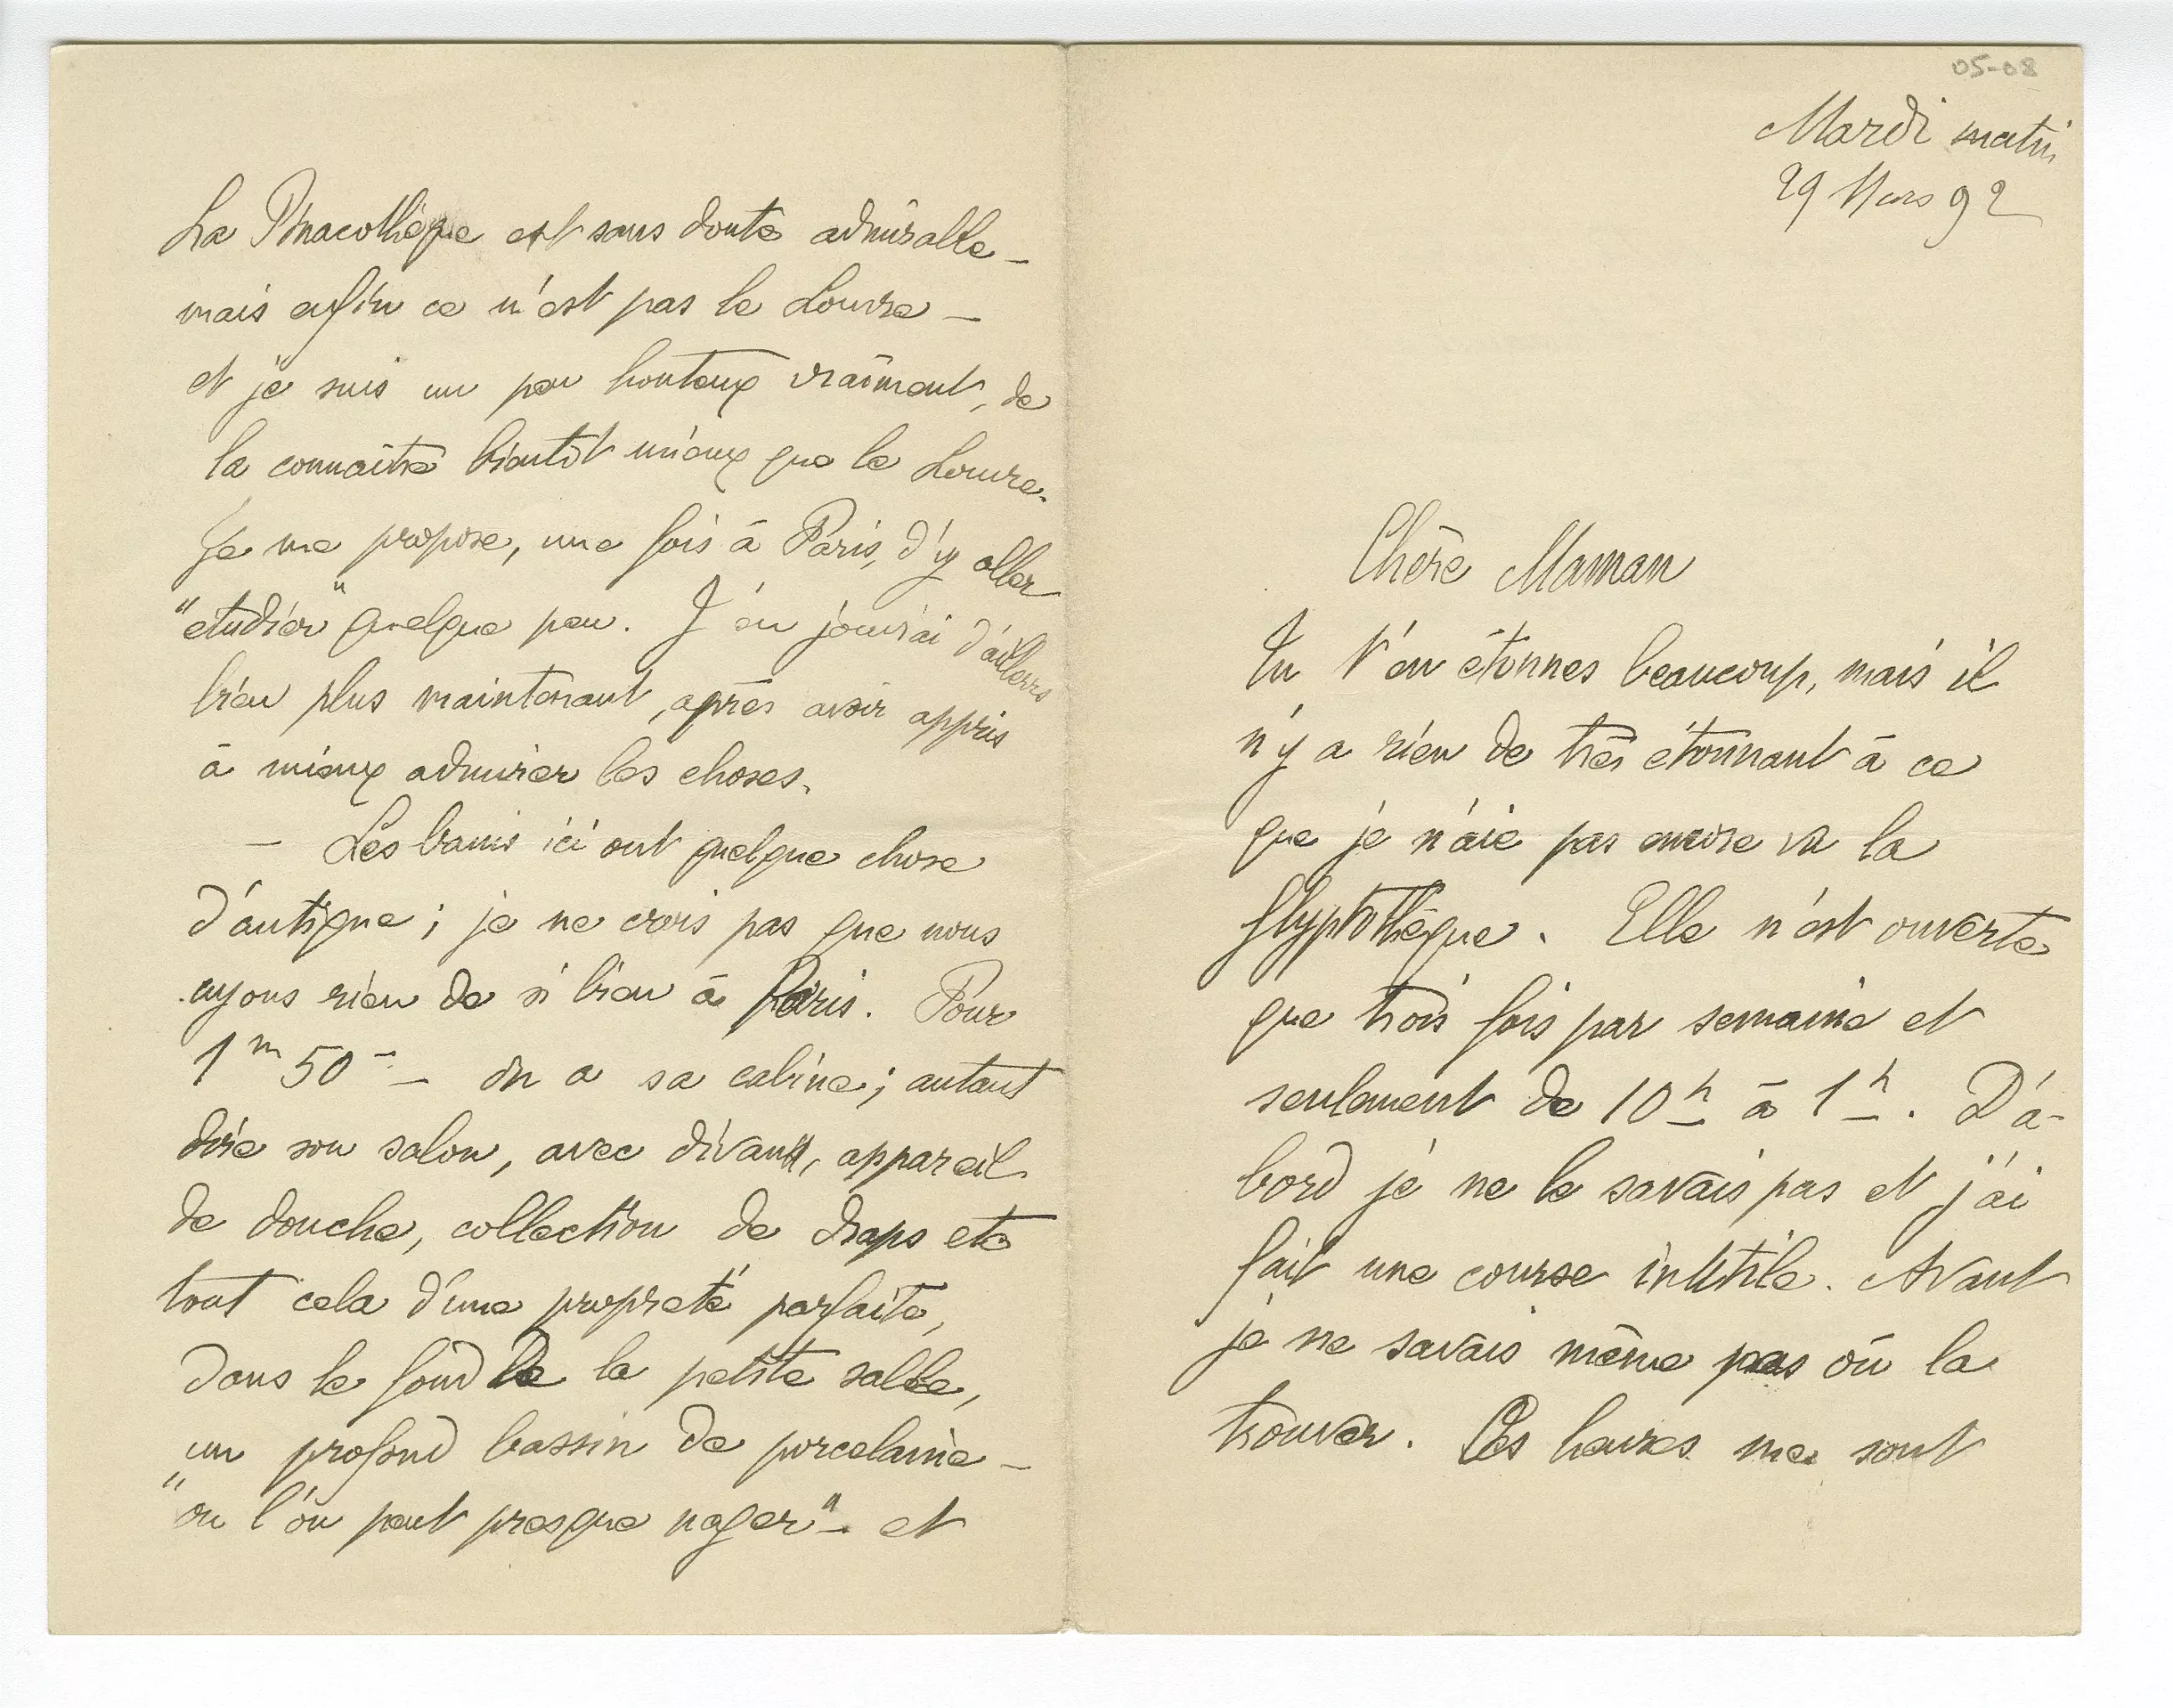 05-08
Mardi matin
29 Mars 92
Chère Maman
Tu t'en étonnes beaucoup, mais il
n'y a rien de très étonnant à ce
que je n'aie pas encore vu la
glyptothèque. Elle n'est ouverte
que trois fois par semaine et
seulement de 10h à 1h. D'a-
bord je ne le savais pas et j'ai
fait une course inutile. Avant
je ne savais même pas où la
trouver. Ces heures me sont
La Pinacothèque est sans doute admirable –
mais enfin ce n'est pas le Louvre –
et je suis un peu honteux vraiment, de
la connaître bientôt mieux que le Louvre.
Je me propose, une fois à Paris, d'y aller
"etudier" quelque peu. J'en jouirai d'ailleurs
bien plus maintenant, après avoir appris
à mieux admirer les choses.
– Les bains ici ont quelque chose
d'antique ; je ne crois pas que nous
ayons rien de si bien à Paris. Pour
1m 50 – on a sa cabine ; autant
dire son salon, avec divan, appareil
de douche, collection de draps etc
tout cela d'une propreté parfaite,
dans le fond de la petite salle,
un profond bassin de porcelaine –
"où l'on peut presque nager" – et